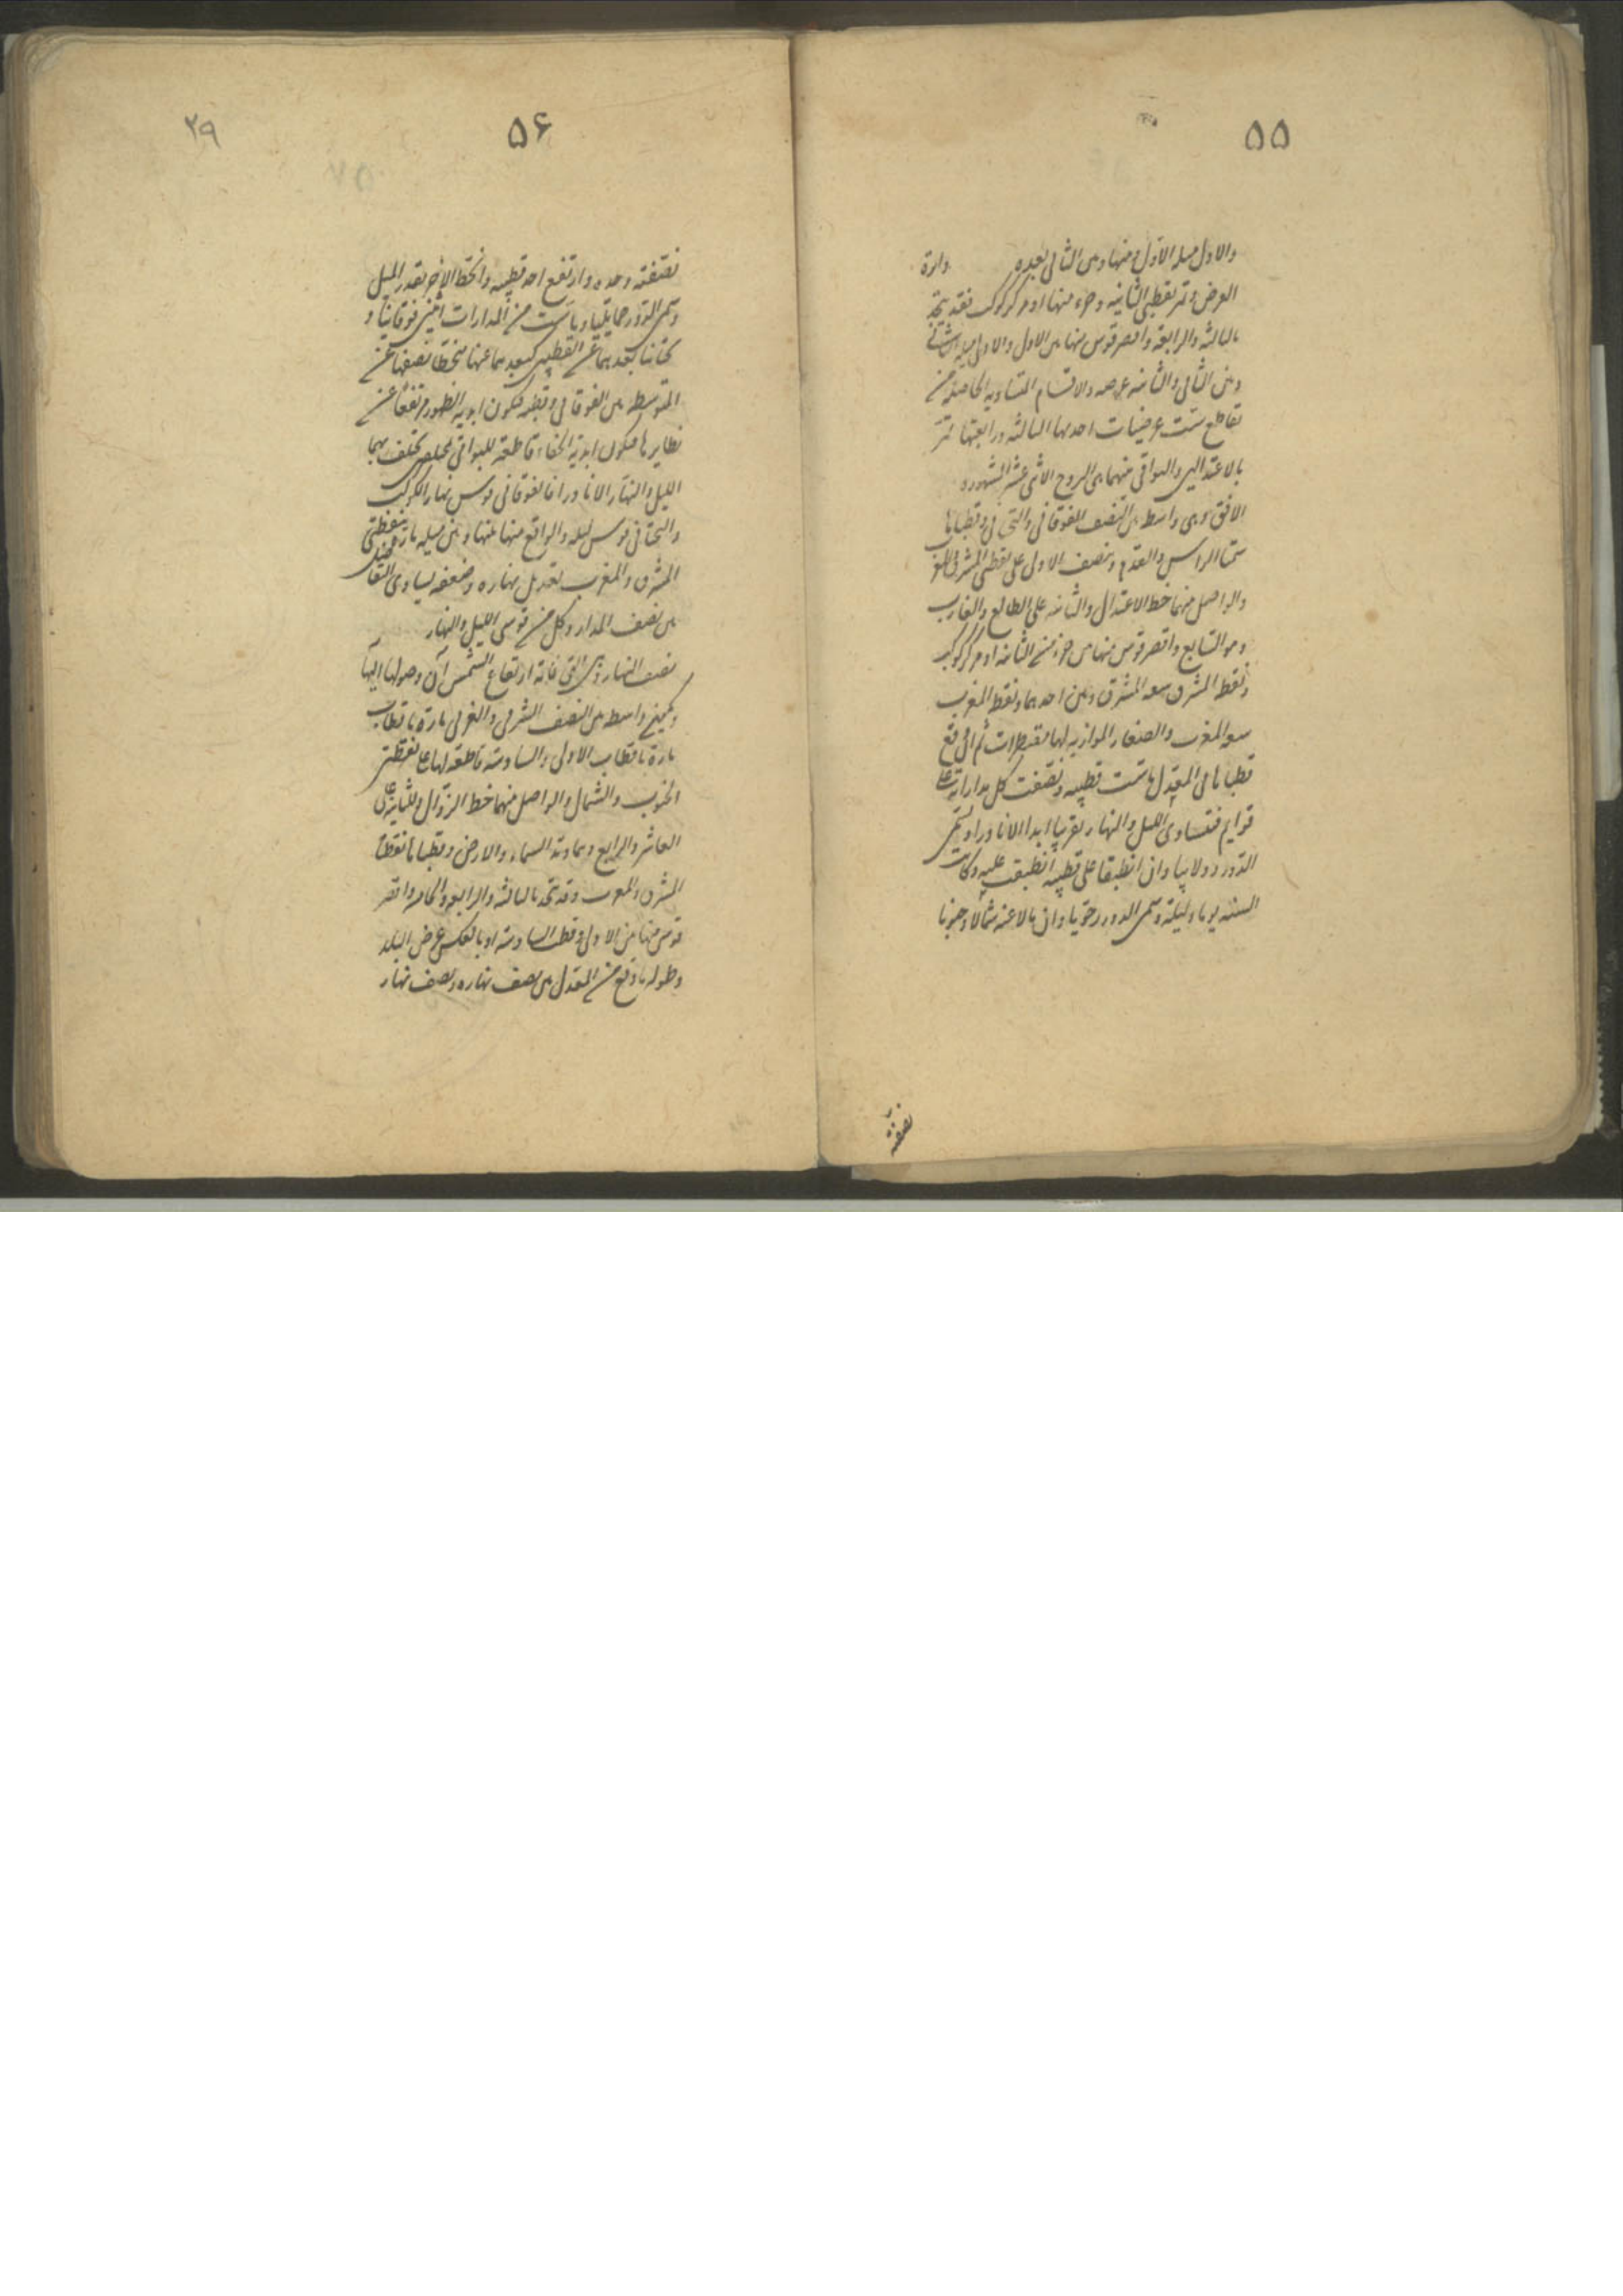 ۵۵
والاول میله الاول ومنها وبین الثانی بعده دائرة
العرض وتمر بقطبی الثانیه وجزء منها او مرکز کوکب فقد یتحد
بالثالثه والرابعة واقصر قوس منها بین الاول والاولی میله الثانی
وبین الثانی والثانیه عرضه والاقسام المتساویه الحاصله من
تقاطع ست عرضیات احدیها الثالثه ورابعتها تمر
بالاعتدالین والبواقی منهما هی البروج الاثنی عشر المشهوره
الافق وهی واسطه بین النصف الفوقانی والتحتانی وقطباها
سمتا الراس والقدم وتنصف الاولی علی نقطتی المشرق والمغرب
والواصل منهما خط الاعتدال والثانیه علی الطالع والغارب
وهو السابع واقصر قوس منها بین جزء من الثانیه او مرکز کوکب
ونقطه المشرق سعه المشرق وبین احدهما ونقطه المغرب
سعه المغرب والصغار الموازیه لها مقنطرات ثم ان وقع
قطباها علی المعدل سامتت قطبیه ونصفت کل مداراته علی
قوایم فتساوی اللیل والنهار تقریبا ابدا الا نادرا ویسمی
الدور دولابیا وان انطبقا علی قطبیه انطبقت علیه وکانت
السنه یوما ولیلة ویسمی الدور رحویا وان مالا عنه شمالا وجنوبا
نصفته
۵۶
۲۹
نصفته وحده وارتفع احد قطبیه وانحط الآخر بقدر المیل
ویسمی الدور حمایلیا وماست من المدارات اثنین فوقانیا و
تحتانیا بعدهما عن القطبین کبعدهما عنها منحطا نصفها عن
المتوسطه بین الفوقانی وقطبه فیکون ابدیه الظهور مرتفعا عن
نظایرها فیکون ابدیة الخفاء قاطعة للبواقی بمختلفین یختلف بهما
اللیل والنهار الا نادرا فالفوقانی قوس نهار الکوکب
والتحتانی قوس لیله والواقع منها بینها وبین میله مارة بنقطتی
المشرق والمغرب تعدیل نهاره وضعفه یساوی التفاضل
بین نصف المدار وکل من قوسی اللیل والنهار
نصف النهار وهی التی غایة ارتفاع الشمس آن وصولها الیها
وهی واسطه بین النصف الشرقی والغربی مارة باقطاب
مارة باقطاب الاولی والسادسه قاطعة لها علی نقطتی
الجنوب والشمال والواصل منهما خط الزوال وللثانیة علی
العاشر والرابع وهما وتد السماء والارض وقطباها نقطتا
المشرق والمغرب وقد تتحد بالثالثه والرابعه والخامسه واقصر
قوس منها بین الاولی وقطب السادسه او بالعکس عرض البلد
وطوله ما وقع من المعدل بین نصف نهاره ونصف نهار